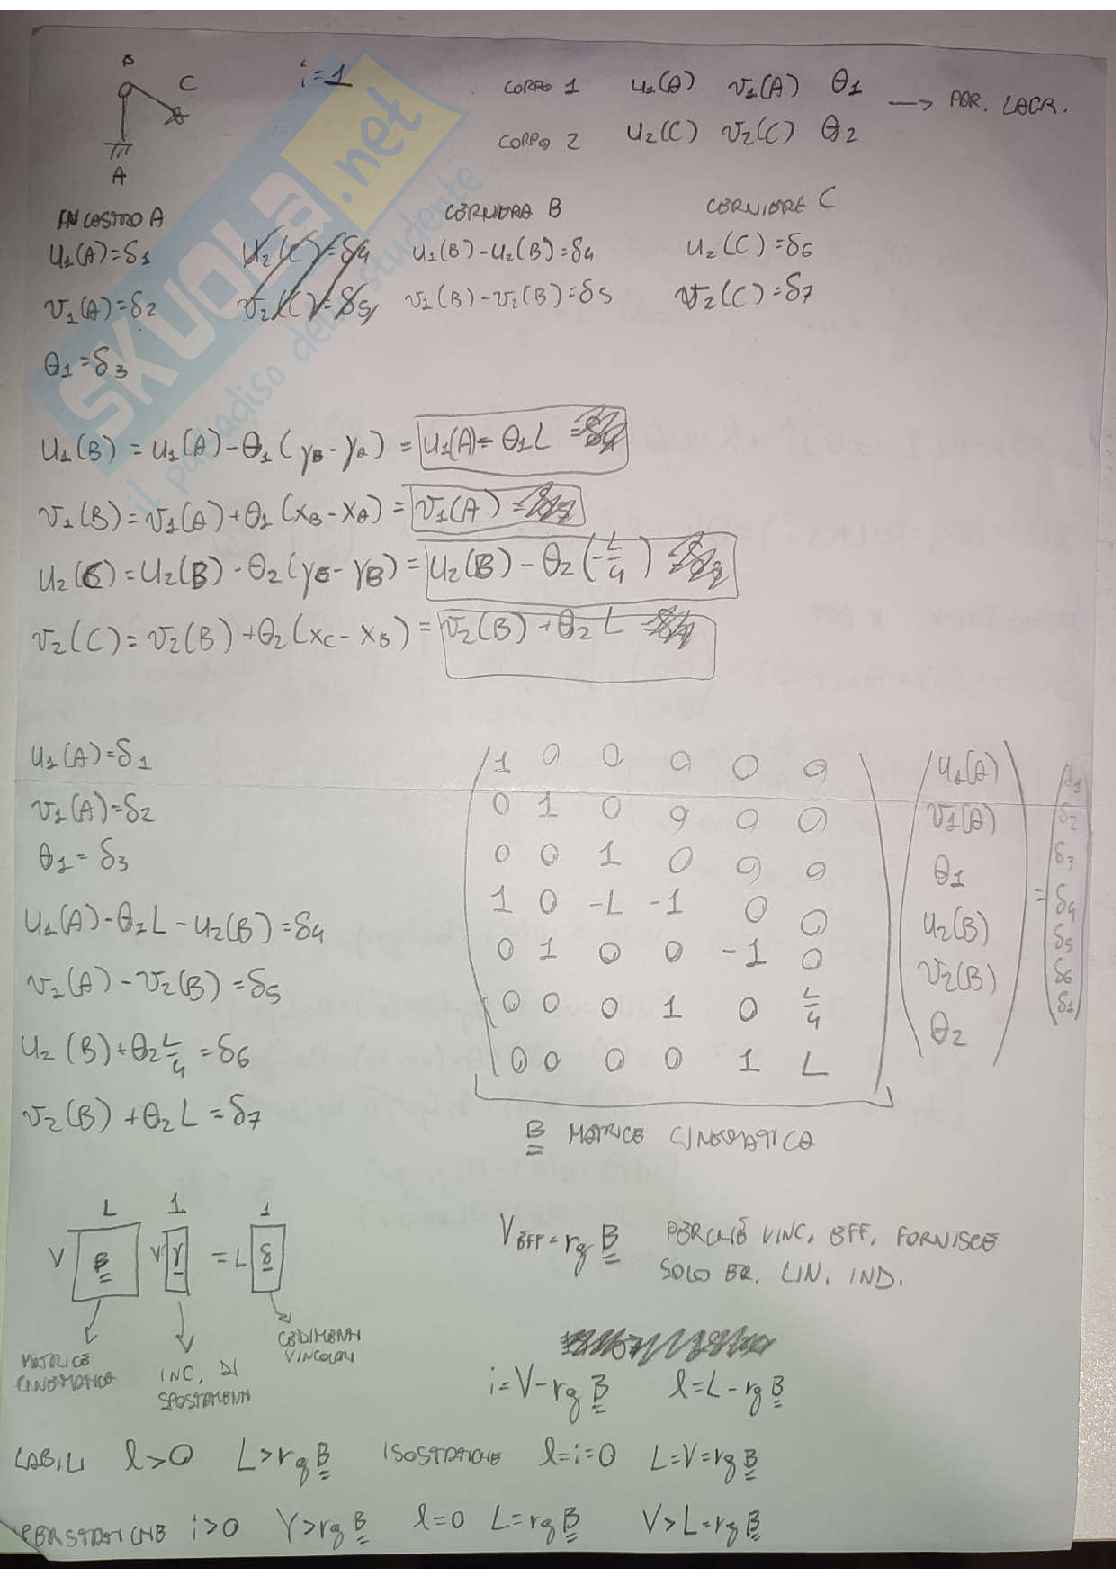 B
C
A
i=1
CORPO 1 u₁(A) v₁(A) θ₁
CORPO 2 u₂(C) v₂(C) θ₂
→ PAR. LAGR.
INCASTRO A
u₁(A)=δ₁
v₁(A)=δ₂
θ₁=δ₃
u₂(C)=δ₄
v₂(C)=δ₅
CERNIERA B
u₁(B)-u₂(B)=δ₄
v₁(B)-v₂(B)=δ₅
CERNIERE C
u₂(C)=δ₆
v₂(C)=δ₇
u₁(B) = u₁(A)-θ₁(yB-yA) = u₁(A)-θ₁L
v₁(B)=v₁(A)+θ₁(xB-xA)= v₁(A)
u₂(C)=u₂(B)-θ₂(yC-yB)= u₂(B)-θ₂(-L/4)
v₂(C)=v₂(B)+θ₂(xC-xB)= v₂(B)+θ₂L
u₁(A)=δ₁
v₁(A)=δ₂
θ₁=δ₃
u₁(A)-θ₁L-u₂(B)=δ₄
v₁(A)-v₂(B)=δ₅
u₂(B)+θ₂L/4=δ₆
v₂(B)+θ₂L=δ₇
1 0 0 0 0 0 u₁(A) δ₁
0 1 0 0 0 0 v₁(A) δ₂
0 0 1 0 0 0 θ₁ δ₃
1 0 -L -1 0 0 u₂(B) = δ₄
0 1 0 0 -1 0 v₂(B) δ₅
0 0 0 1 0 L/4 θ₂ δ₆
0 0 0 0 1 L δ₇
B MATRICE CINEMATICA
L 1 1
V B V r = L δ
MATRICE
CINEMATICA
INC. DI
SPOSTAMENTI
CEDIMENTI
VINCOLARI
VEFF=rg B PERCHÉ VINC. EFF. FORNISCE
SOLO EQ. LIN. IND.
i=V-rg B l=L-rg B
LABILI l>0 L>rg B ISOSTATICHE l=i=0 L=V=rg B
IPERSTATICHE i>0 V>rg B l=0 L=rg B V>L=rg B
SKUOLA.net
il paradiso dello studente